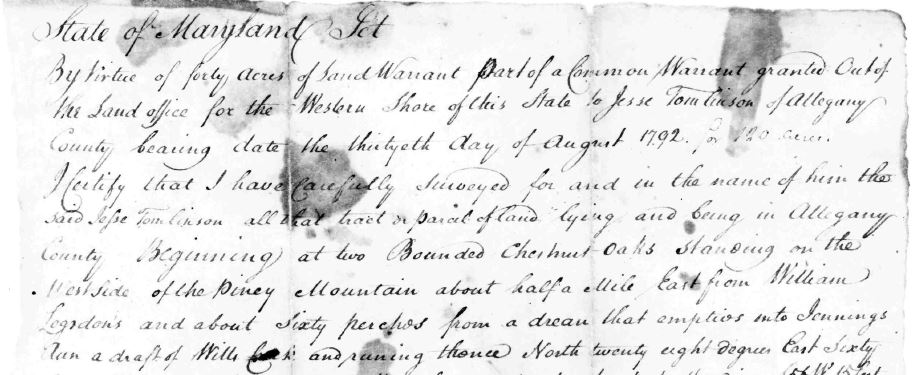 State of Maryland Sct
By Virtue of forty Acres of Land Warrant part of a Common Warrant granted Out of
the Land office for the Western Shore of this State to Jesse Tomlinson of Allegany
County bearing date the thirtyeth day of August 1792. for 120 acres.
I Certify that I have Carefully Surveyed for and in the name of him the
said Jesse Tomlinson all that tract or parcel of land lying and being in Allegany
County Beginning at two Bounded Chestnut Oaks standing on the
West side of the Piney Mountain about half a Mile East from William
Logsdon's and about Sixty perches from a drean that empties into Jennings
Run a draft of Wills Creek and runing thence North twenty eight degrees East Sixty